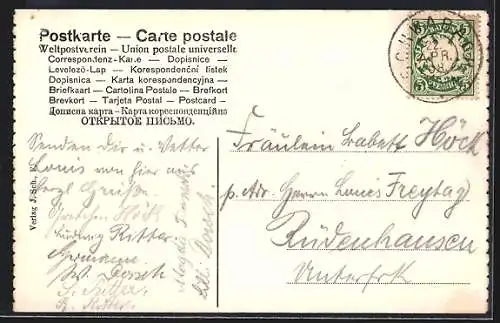 Postkarte — Carte postale
Weltpostverein — Union postale universelle
Correspondenz-Karte — Dopisnice
Levelezö-Lap — Korespondenční lístek
Dopisnica — Karta korespondencyjna
Briefkaart — Cartolina Postale — Brefkort
Brevkort — Tarjeta Postal — Postcard —
Дописна карта — Карта кореспонденційна
ОТКРЫТОЕ ПИСЬМО.
Senden dir u. Vetter
Louis von hier aus
herzl. Grüße.
Gretchen Höck
Ludwig Ritter
Germann
W. Dorsch
Ritter
Ritter
Dorsch
Verlag J. Seh.
Fräulein Babett Höck
p. Adr. Herrn Louis Freytag
Rüdenhausen
Unterfrk
5
5